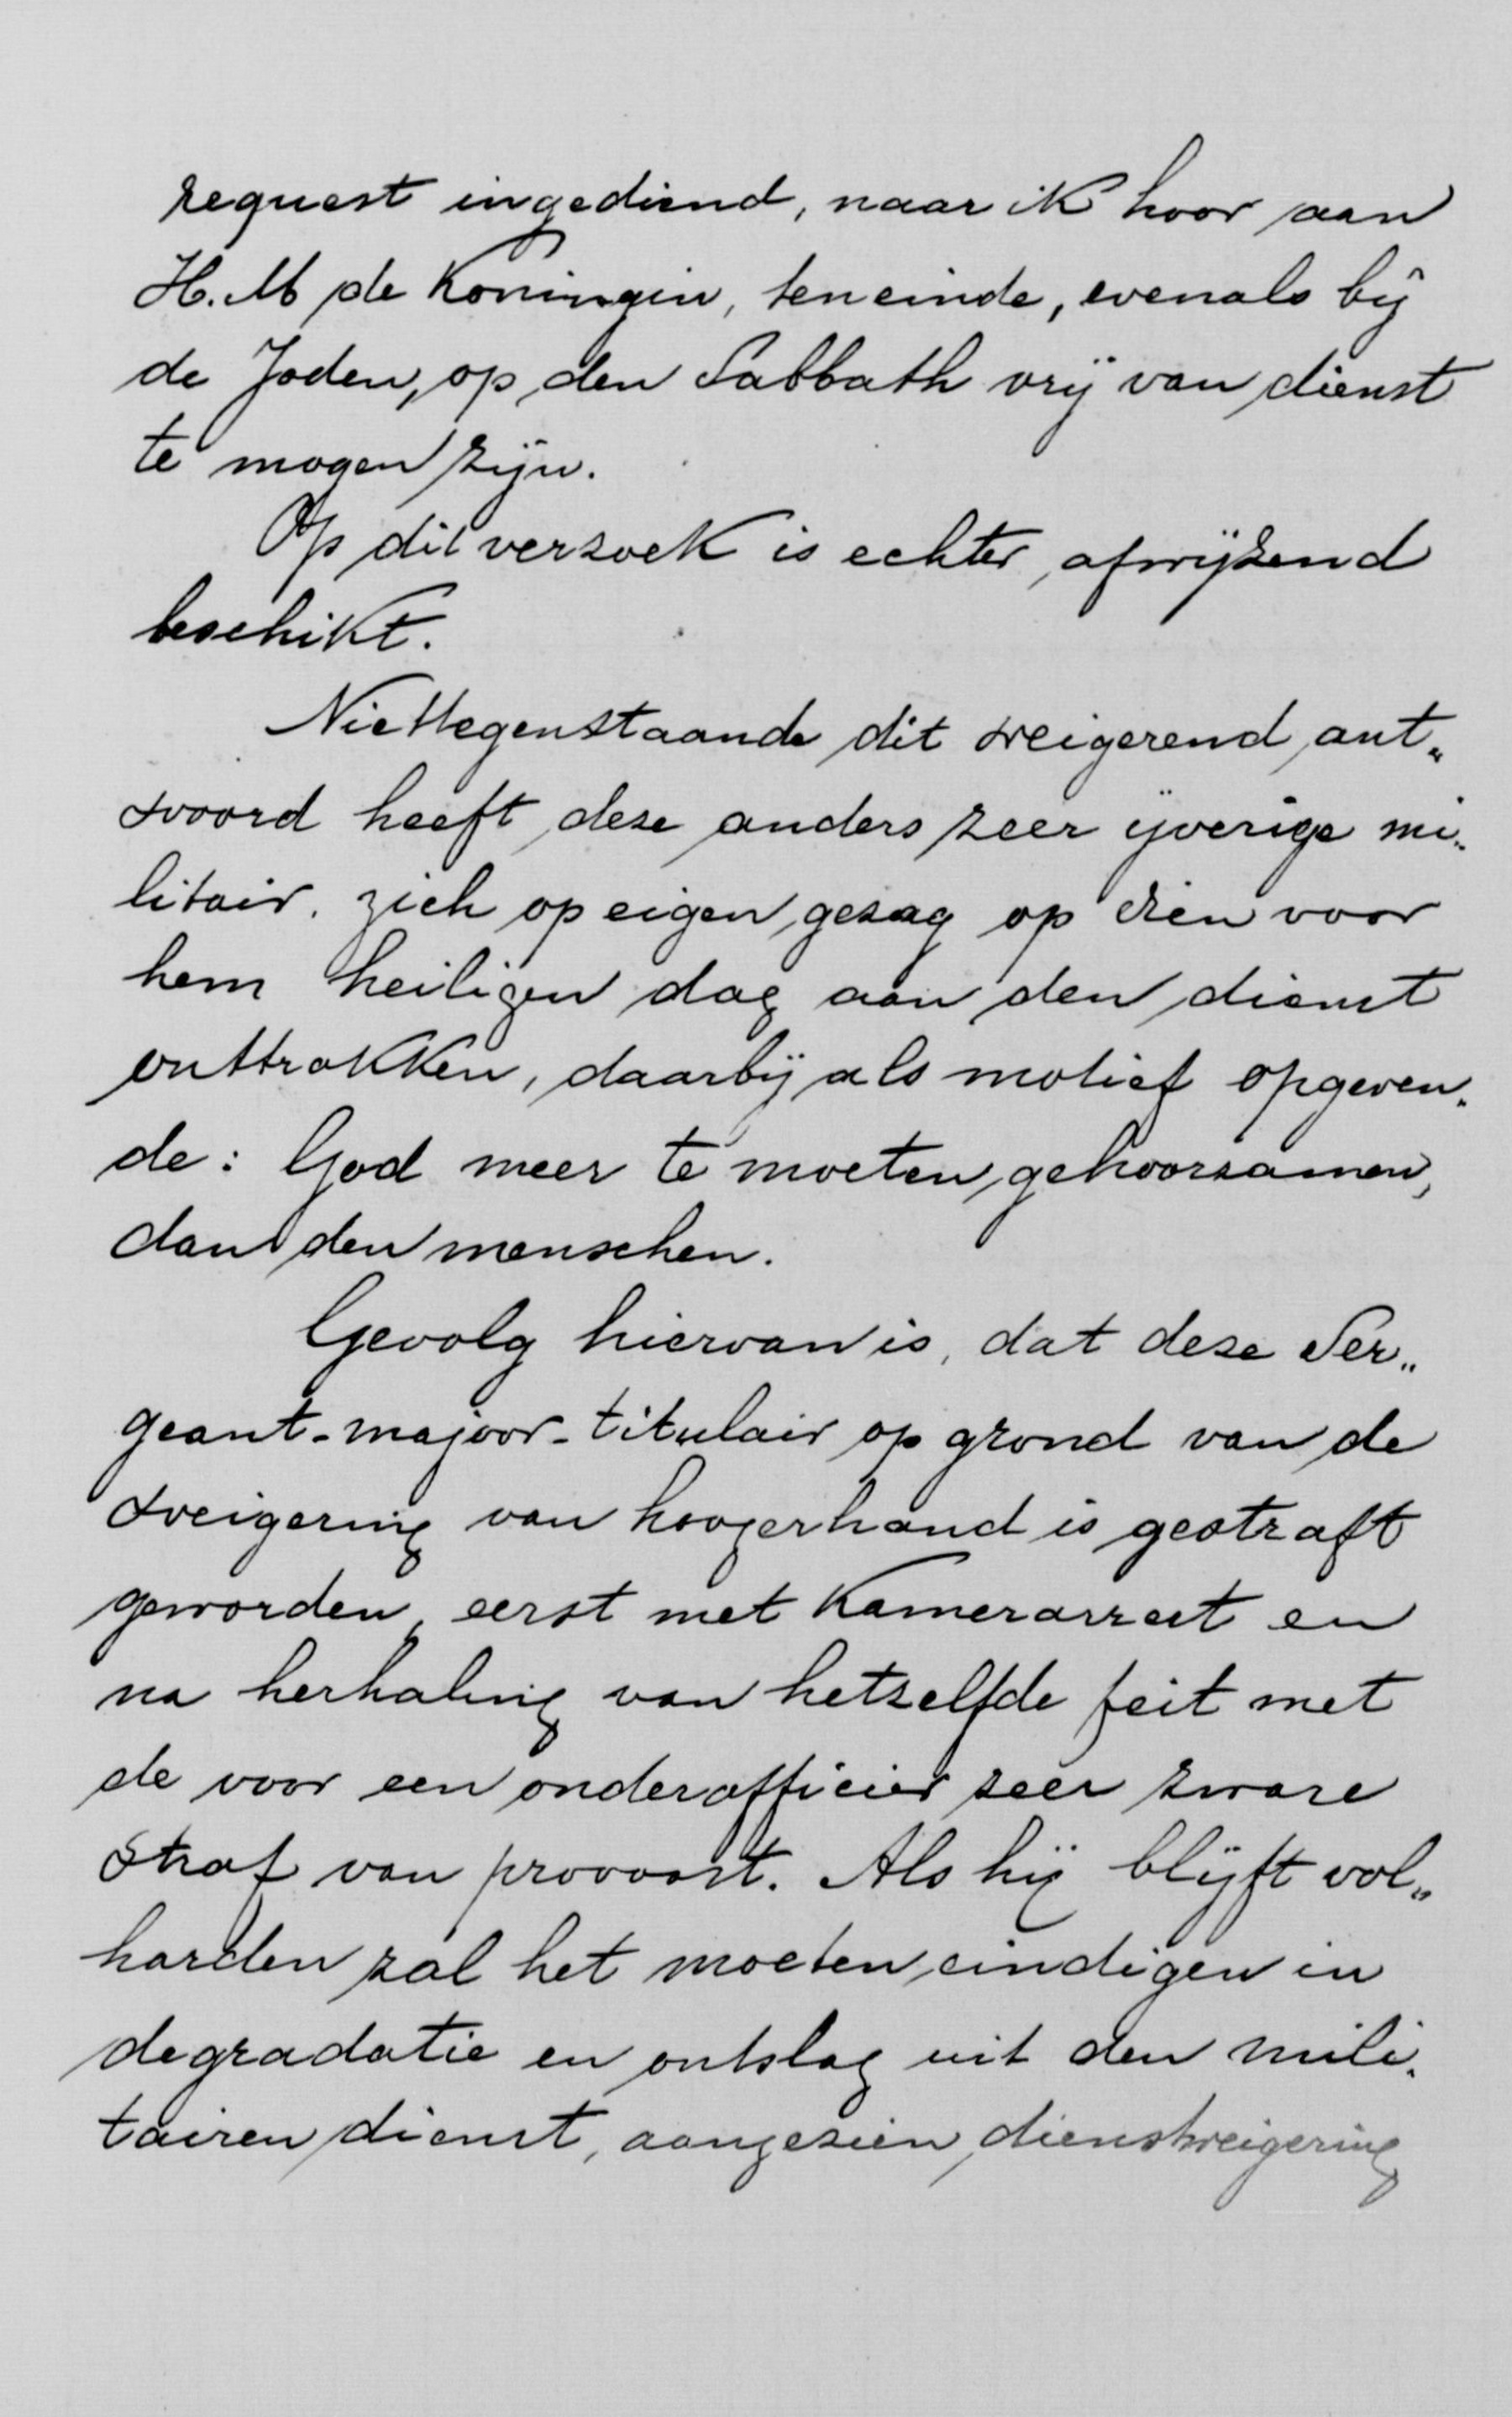 request ingediend, naar ik hoor aan
H.M de Koningin, teneinde, evenals bij
de Joden, op den Sabbath vrij van dienst
te mogen zijn.
Op dit verzoek is echter afwijzend
beschikt.
Niettegenstaande dit weigerend ant„
woord heeft deze anders zeer ijverige mi„
litair. zich op eigen gezag op dien voor
hem heiligen dag aan den dienst
onttrokken, daarbij als motief opgeven„
de: God meer te moeten gehoorzamen,
dan den menschen.
Gevolg hiervan is, dat deze Ser„
geant-majoor-titulair op grond van de
weigering van hoogerhand is gestraft
geworden, eerst met Kamerarrest en
na herhaling van hetzelfde feit met
de voor een onderofficier zeer zware
straf van provoost. Als hij blijft vol„
harden zal het moeten eindigen in
degradatie en ontslag uit den mili„
tairen dienst, aangezien dienstweigering